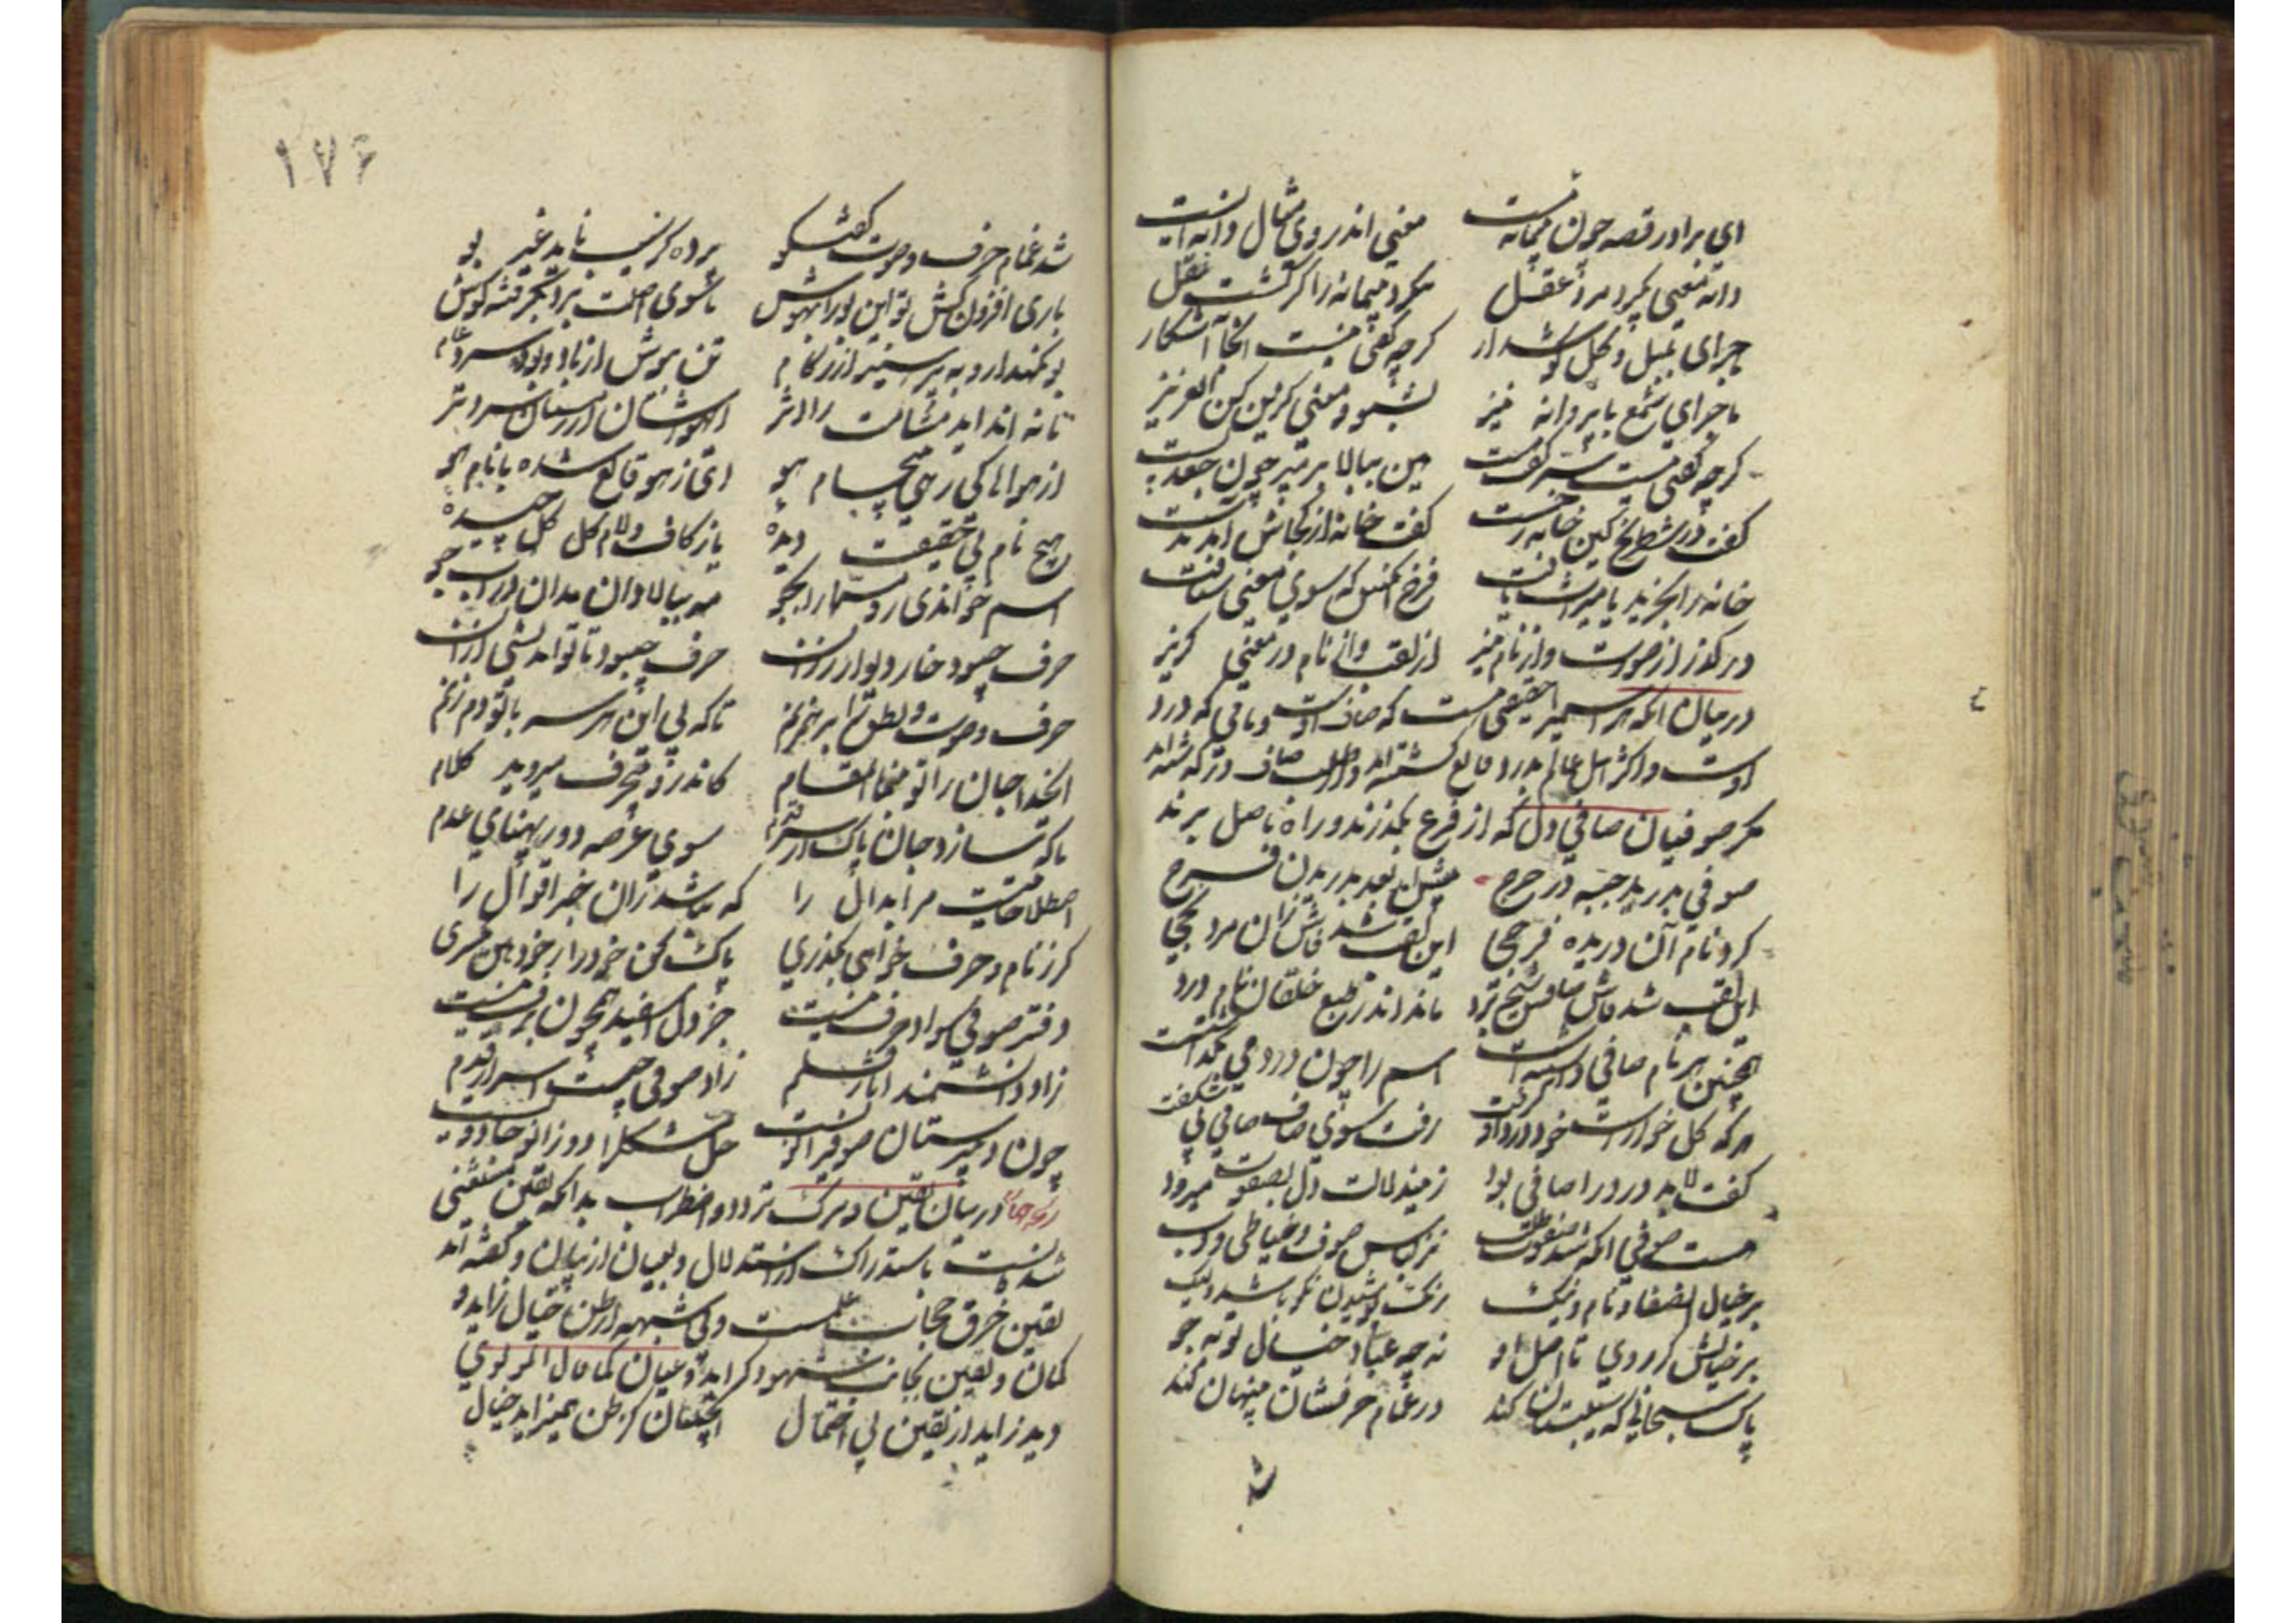 ای برادر قصه چون پیمانه است معنی اندر وی مثال دانه ایست
دانه معنی بگیرد مرد عقل ننکرد پیمانه را کر کشت نقل
ماجرای بلبل و کل کوش دار کرچه کفتی نیست آنجا آشکار
ماجرای شمع با پروانه نیز بشنو و معنی کزین کن ای عزیز
کرچه کفتی نیست سر کفت هست هین ببالا پر مپر چون جغد پست
کفت در شطرنج کین خانه رخست کفت خانه از کجاش آمد بدست
خانه را بخرید یا میراث یافت فرخ آنکس که سوی معنی شتافت
درکذر از صورت و از نام خیز از لقب وز نام در معنی کریز
در بیان آنکه هر اسمیرا حقیقتی هست که صاف اوست و باقی که درد
اوست و اکثر اهل عالم بدرد قانع کشته اند و از طلب صاف درکذشته اند
مکر صوفیان صافی دل که از فرع بکذرند و راه باصل برند
صوفی بدرید جبه در حرج پیشش آمد بعد بدریدن فرج
کرد نام آن دریده فرجی این لقب شد فاش زان مرد نجی
این لقب شد فاش صافش شیخ برد ماند اندر طبع خلقان نام درد
همچنین هر نام صافی داشتست اسم را چون دردی بگذاشتست
هر که کل خوارست دردی را کرفت رفت صوفی سوی صافی ناشکفت
کفت لابد درد را صافی بود زین دلالت دل بصفوت میرود
هست صوفی آنکه شد صفوت طلب نز لباس صوف و خیاطی و دب
بر خیال آن صفا و نام نیک رنک پوشیدن نکو باشد ولیک
بر خیالش کر روی تا اصل او نه چو عباد خیال تو بتو
پاک سبحانی که سیبستان کند در غمام حرفشان پنهان کند
شد
۱۷۶
شد غمام حرف و صوت و کفتکو پرده کز سیب ناید غیر بو
باری افزون کش تو این بو را بهوش تا سوی اصلت برد بکرفته کوش
بو نکهدار و بپرهیز از زکام تن بپوش از باد و بود سرد عام
تا نینداید مشامت را اثر ای هواشان از زمستان سردتر
از هواها کی رهی بی جام هو ای ز هو قانع شده با نام هو
هیچ نام بی حقیقت دیده یا ز کاف و لام کل کل چیده
اسم خواندی رو مسما را بجو مه ببالا دان مدان در آب جو
حرف چبود تا تو اندیشی از آن حرف چبود خار دیوار رزان
حرف و صوت و نطق را بر هم زنم تا که بی این هر سه با تو دم زنم
ای خدا جان را تو بنما آن مقام کاندرو بی حرف میروید کلام
تا که سازد جان پاک از سر قدم سوی عرصه دور پهنای عدم
اصطلاحاتیست مر ابدال را که نباشد زان خبر اقوال را
کر ز نام و حرف خواهی بکذری پاک کن خود را ز خود هین یکسری
دفتر صوفی سواد حرف نیست جز دل اسفید همچون برف نیست
زاد دانشمند آثار قلم زاد صوفی چیست اسرار قدم
چون دبیرستان صوفی زانوست حل مشکل را دو زانو جادوست
در بیان یقین و ترک تردد و اضطراب بدانکه یقین منتفی
یقین خرق حجاب علمست و بی شبهه از ظن خیال زاید و
کمان و یقین بجانب شهود کراید و عیان کما قال المولوی
دید زاید از یقین بی احتمال آنچنان کز ظن همیزاید خیال